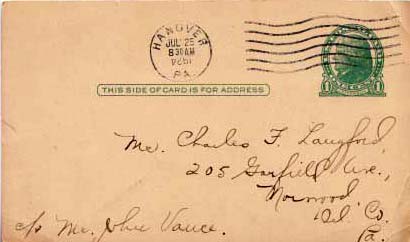 HANOVER
JUL 25
8 30AM
PA.
THIS SIDE OF CARD IS FOR ADDRESS
1 1
Mr. Charles F. Langford,
205 Garfield Ave.,
Norwood,
Del. Co.
c/o Mr. John Vance.
Pa.